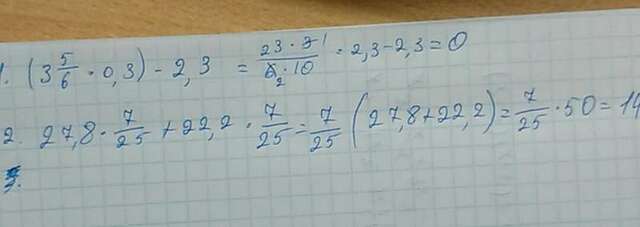 1. (3 5/6 · 0,3) - 2,3 = 23 · 3 1 / 6 2 · 10 · 2,3 - 2,3 = 0
2. 27,8 · 7/25 + 22,2 · 7/25 = 7/25 (27,8 + 22,2) = 7/25 · 50 = 14
3.